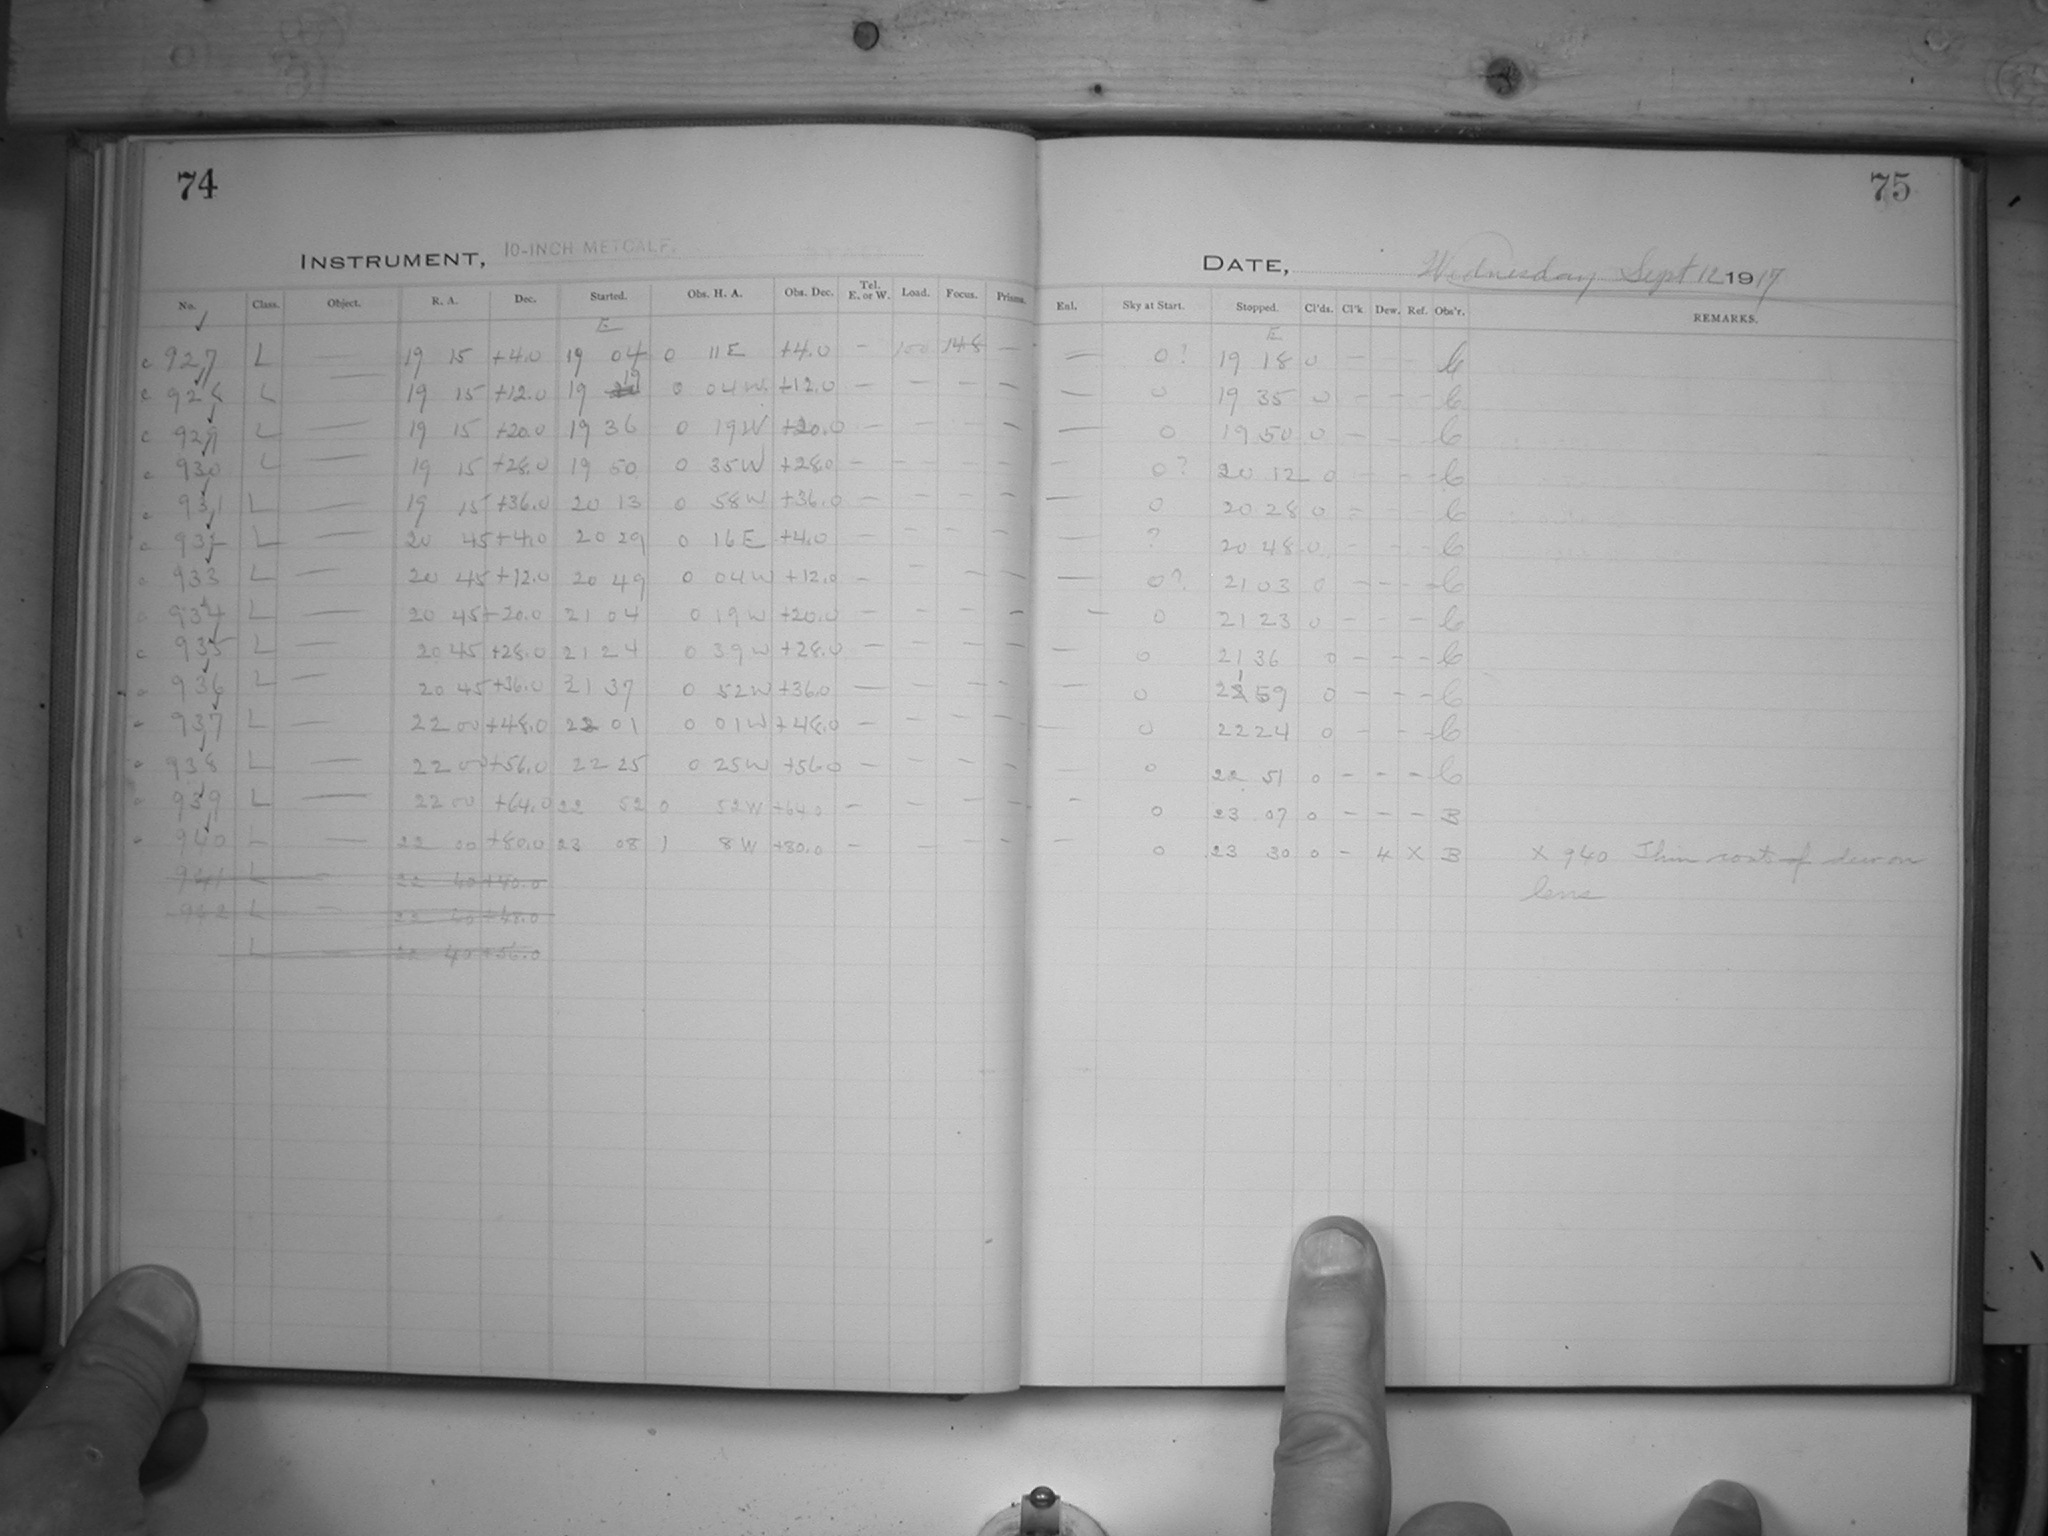 74
75
INSTRUMENT, 10-INCH METCALF.
DATE, Wednesday Sept 12 1917
No. Class. Object. R. A. Dec. Started. Obs. H. A. Obs. Dec. Tel. E. or W. Load. Focus. Prisms. Enl. Sky at Start. Stopped. Cl'ds. Cl'k Dew. Ref. Obs'r. REMARKS.
E E
c 927 L — 19 15 +4.0 19 04 0 11 E +4.0 — 100 148 — — 0? 19 18 0 — — — C
c 928 L — 19 15 +12.0 19 19 0 04 W +12.0 — — — — — 0 19 35 0 — — — C
c 929 L — 19 15 +20.0 19 36 0 19 W +20.0 — — — — — 0 19 50 0 — — — C
c 930 L — 19 15 +28.0 19 50 0 35 W +28.0 — — — — — 0? 20 12 0 — — — C
c 931 L — 19 15 +36.0 20 13 0 58 W +36.0 — — — — — 0 20 28 0 — — — C
c 932 L — 20 45 +4.0 20 29 0 16 E +4.0 — — — — — ? 20 48 0 — — — C
c 933 L — 20 45 +12.0 20 49 0 04 W +12.0 — — — — — 0? 21 03 0 — — — C
c 934 L — 20 45 +20.0 21 04 0 19 W +20.0 — — — — — 0 21 23 0 — — — C
c 935 L — 20 45 +28.0 21 24 0 39 W +28.0 — — — — — 0 21 36 0 — — — C
c 936 L — 20 45 +36.0 21 37 0 52 W +36.0 — — — — — 0 21 59 0 — — — C
c 937 L — 22 00 +48.0 22 01 0 01 W +48.0 — — — — — 0 22 24 0 — — — C
c 938 L — 22 00 +56.0 22 25 0 25 W +56.0 — — — — — 0 22 51 0 — — — C
c 939 L — 22 00 +64.0 22 52 0 52 W +64.0 — — — — — 0 23 07 0 — — — B
c 940 L — 22 00 +80.0 23 08 1 8 W +80.0 — — — — — 0 23 30 0 — 4 X B X 940 Thin coat of dew on
lens
941 L — 22 40 +40.0
942 L — 22 40 +48.0
L — 22 40 +56.0